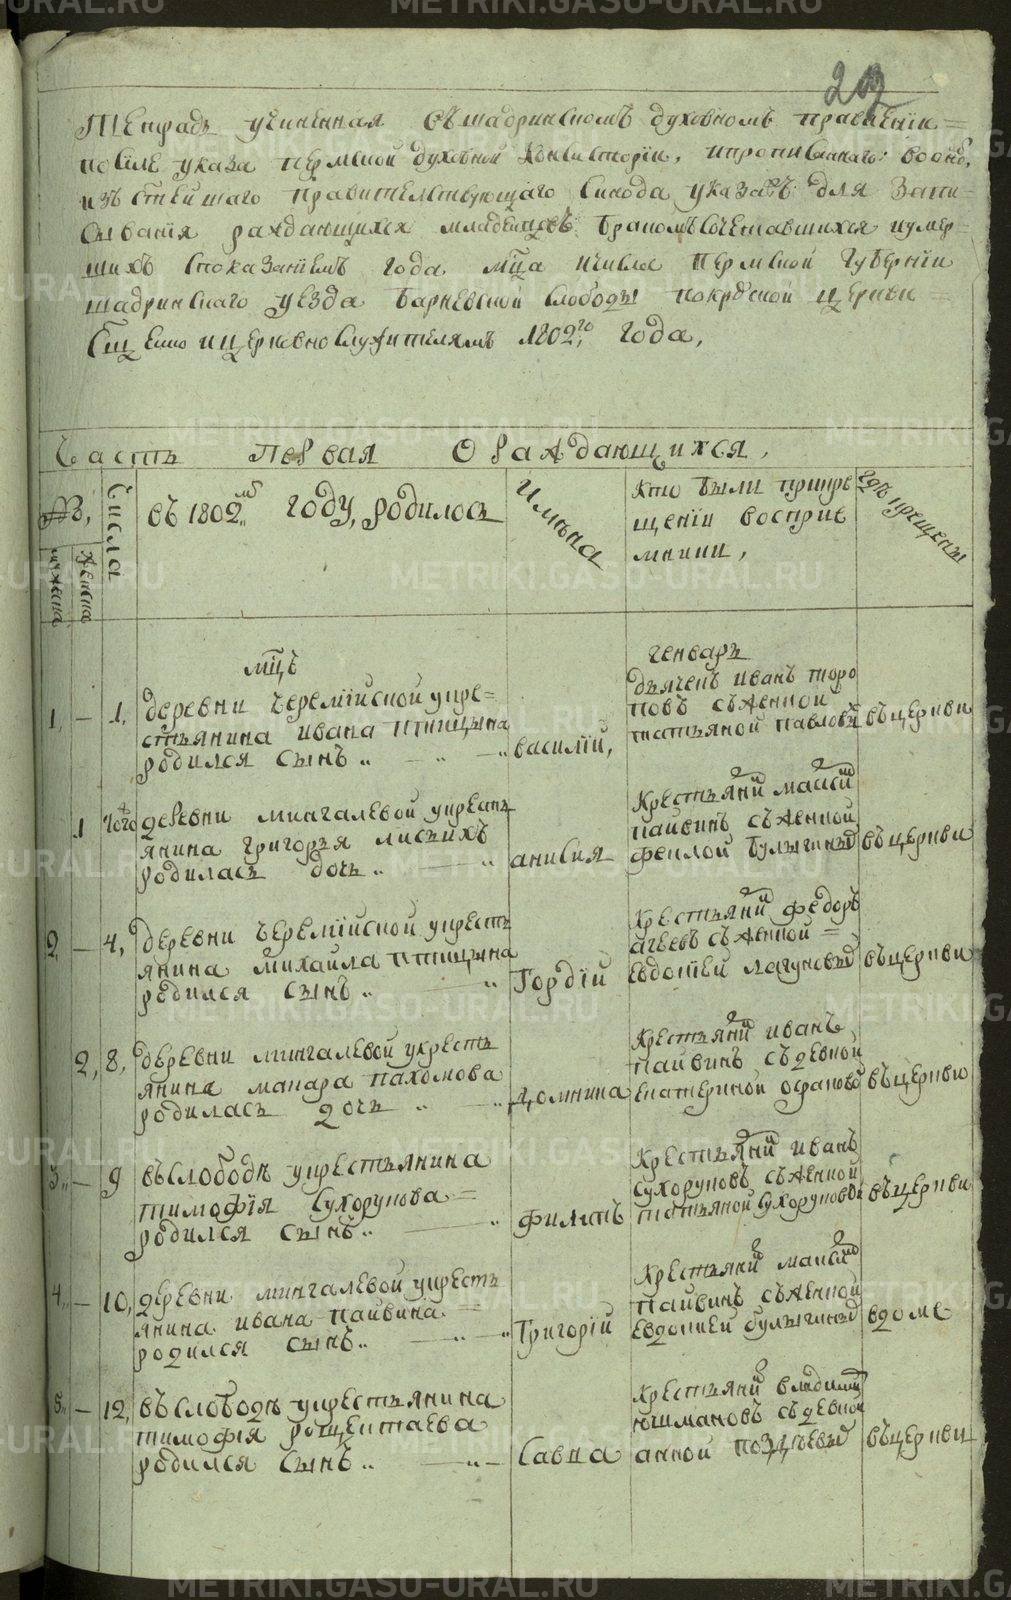 METRIKI.GASO-URAL.RU
23
Тетрадь учиненная въ шадринскомъ духовномъ правленіи =
по силе указа пермской духовной консисторіи, и прописаннаго: во оной,
изъ стнейшаго правительствующаго Синода указа для запи-
сыванія раждающихся младенцовъ бракомъ сочетавшихся и умер-
шихъ с показаніемъ года мца и числа Пермской Губерніи
шадринскаго уезда Барневской слободы покрвской церкви =
Сщенно и церковно служителямъ 1802го, года,
Часть первая О раждающихся,
№,
мужеска
женска
Числа
въ 1802мъ году, родилось
Имена
кто были при кре
щеніи воспріе
мники,
где крещены
мцъ
генварь
1, — 1,
деревни Черемійской у кре=
стьянина ивана птицына
родился сынъ „ — „ — „
василій,
дьячекъ иванъ торо
повъ съ женкой
татьяной павловой
въ церкви
1
того ж
деревни мингалевой у крестъ
янина григорья лисьихъ
родилась дочь „ — „
анисия
Крестьянинъ
пайвинъ съ женкой
феклой булыгиной
въ церкви
2, — 4,
деревни Черемійской у кресть
янина Михайла птицына
родился сынъ „ — „
Гордій
Крестьянинъ федоръ
агеевъ съ женкой =
Евдокией лагуновой
въ церкви
2, 8,
деревни мингалевой у кресть
янина макара пахомова
родилась дочь „ — „
домника
Крестьянинъ иванъ
пайвинъ съ девкой
Екатериной
въ церкви
3„ — 9
въ слободе у крестьянина
тимофѣя Сухорукова =
родился сынъ „ — „
филатъ
Крестьянинъ иванъ
сухоруковъ съ женкой
татьяной Сухоруковой
въ церкви
4„ — 10,
деревни мингалевой у кресть
янина ивана пайвина =
родился сынъ „ — „ — „
Григорій
Крестьянинъ
пайвинъ съ женкой
Евдокией булыгиной
в доме
5„ — 12,
въ слободе у крестьянина
тимофѣя рощектаева
родился сынъ „ — „ —
Савва
Крестьянинъ владимиръ
юшмановъ съ девкой
анной поздѣевой
въ церкви